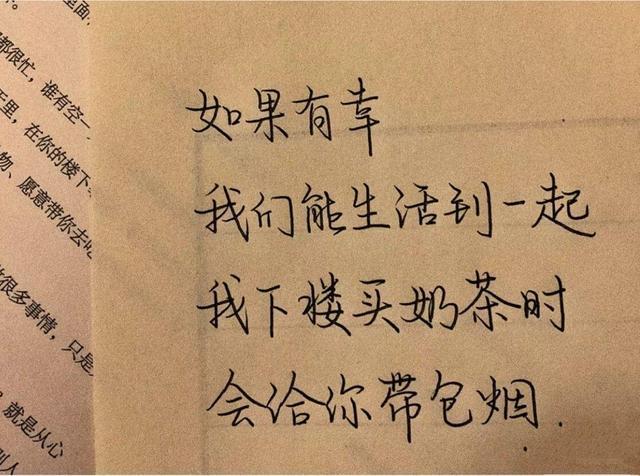 里面
都很忙，谁有空一
里，在你的楼下
物、愿意带你去吃
很多事情，只是
就是从心
别人
如果有幸
我们能生活到一起
我下楼买奶茶时
会给你带包烟.